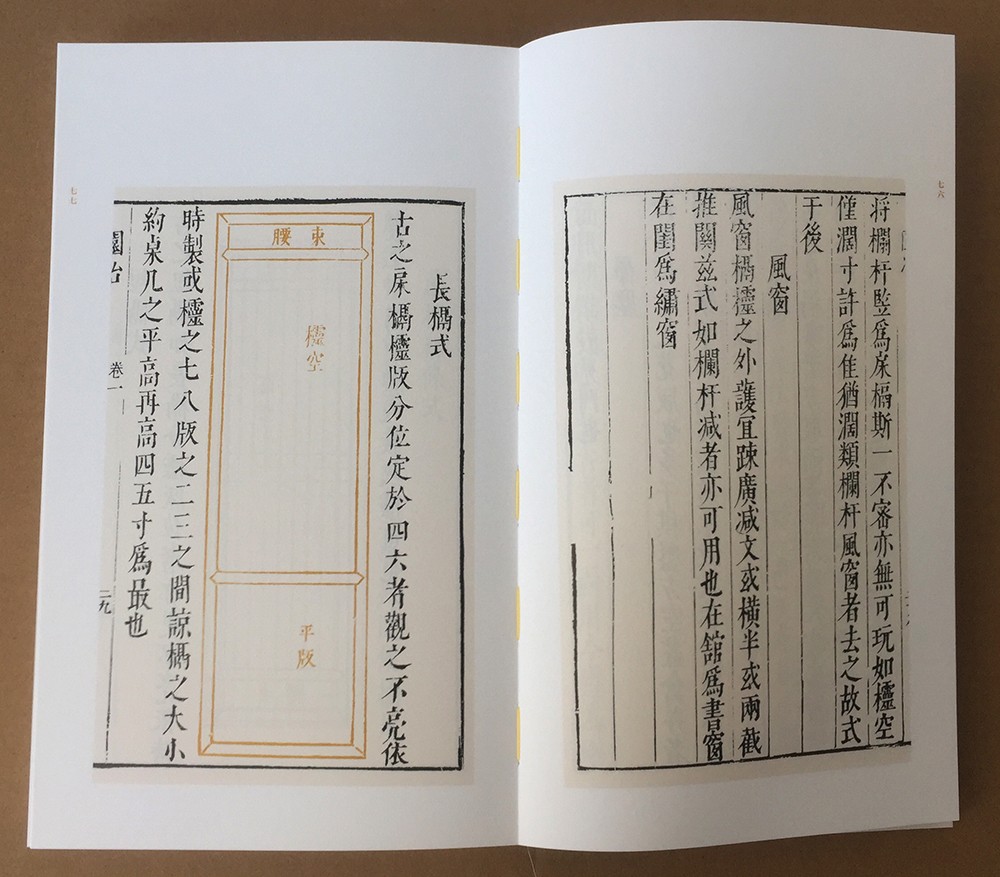 七六
将欄杆竪爲床槅斯一不審亦無可玩如櫺空
僅濶寸許爲佳猶濶類欄杆風窗者去之故式
于後
風窗
風窗槅櫺之外護宜踈廣减文或橫半或兩截
推關茲式如欄杆减者亦可用也在舘爲書窗
在閨爲繡窗
長槅式
古之床槅櫺版分位定於四六者觀之不亮依
束腰
櫺空
平版
時製或櫺之七八版之二三之間諒槅之大小
約桌几之平高再高四五寸爲最也
園冶
卷一
二九
七七